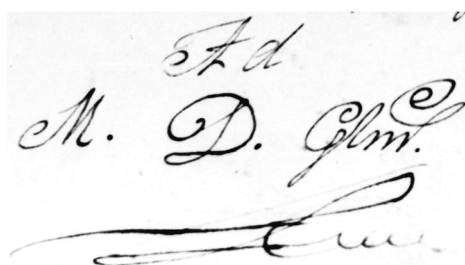 Ad
M. D. Glm.